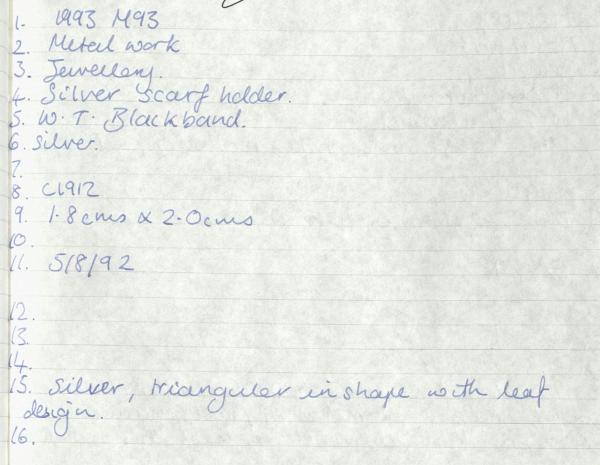 1. 1993 M93
2. Metal work
3. Jewellery.
4. Silver scarf holder.
5. W. T. Blackband.
6. silver.
7.
8. C1912
9. 1.8cms x 2.0cms
10.
11. 5/8/92
12.
13.
14.
15. Silver, triangular in shape with leaf
design.
16.